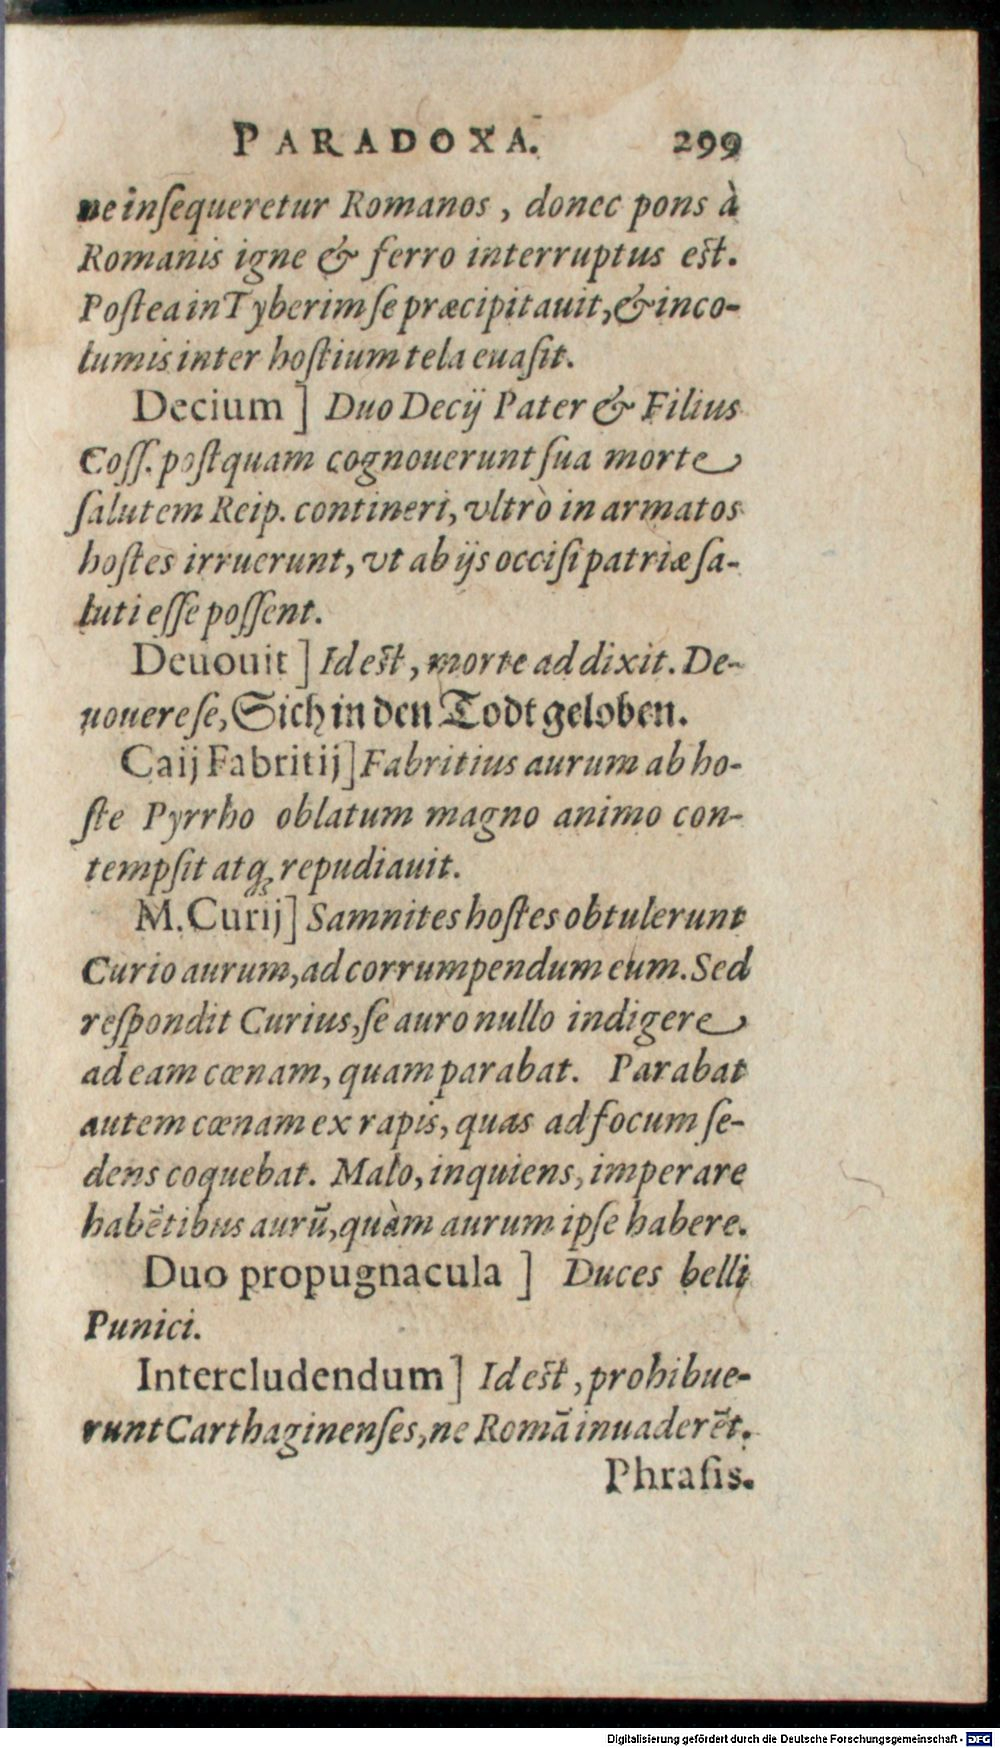 PARADOXA. 299
ne inſequeretur Romanos, donec pons à
Romanis igne & ferro interruptus eſt.
Poſtea in Tyberim ſe præcipitauit, & inco-
lumis inter hoſtium tela euaſit.
Decium] Duo Decij Pater & Filius
Coſſ. poſtquam cognouerunt ſua morte
ſalutem Reip. contineri, vltrò in armatos
hoſtes irruerunt, vt ab ijs occiſi patriæ ſa-
luti eſſe poſſent.
Deuouit] Id eſt, morte addixit. De-
uouere ſe, Sich in den Todt geloben.
Caij Fabritij] Fabritius aurum ab ho-
ſte Pyrrho oblatum magno animo con-
tempſit atq; repudiauit.
M. Curij] Samnites hoſtes obtulerunt
Curio aurum, ad corrumpendum eum. Sed
reſpondit Curius, ſe auro nullo indigere
ad eam cœnam, quam parabat. Parabat
autem cœnam ex rapis, quas ad focum ſe-
dens coquebat. Malo, inquiens, imperare
habētibus aurū, quàm aurum ipſe habere.
Duo propugnacula] Duces belli
Punici.
Intercludendum] Id eſt, prohibue-
runt Carthaginenſes, ne Romā inuaderēt.
Phraſis.
Digitalisierung gefördert durch die Deutsche Forschungsgemeinschaft - DFG